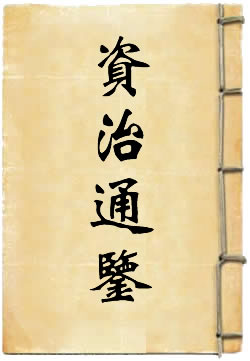 資治通鑒